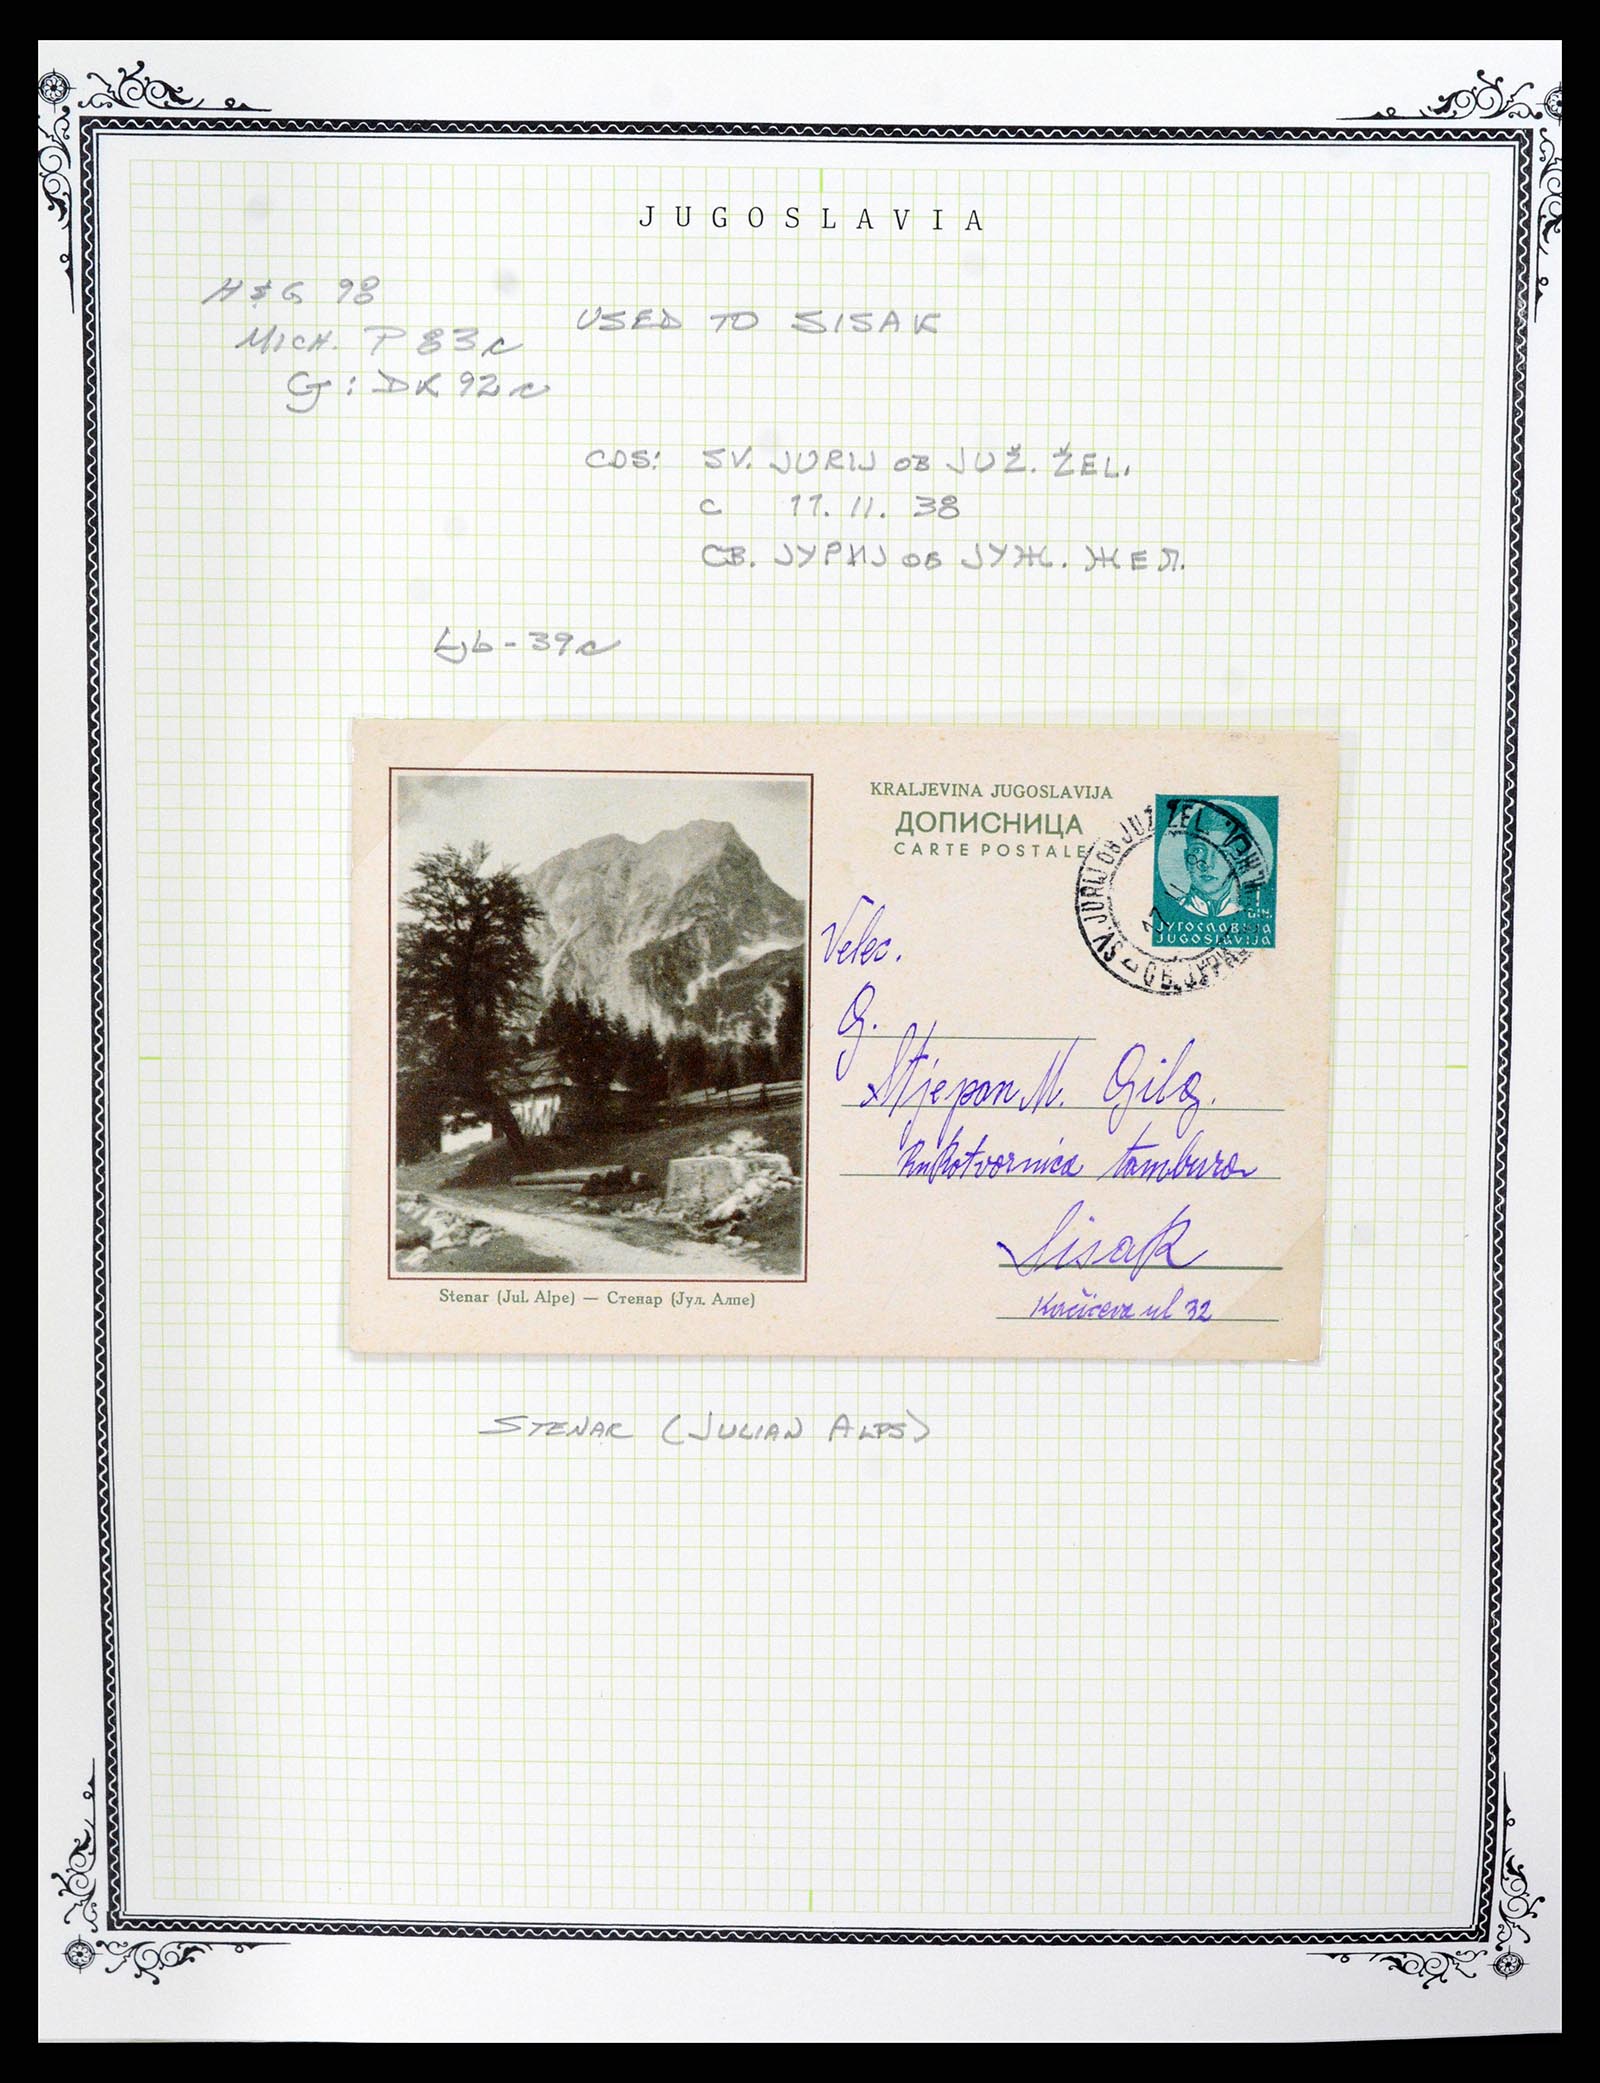 JUGOSLAVIA
H & G 98
MICH. P 83c
G: DK 92c
USED TO SISAK
CDS: SV. JURIJ OB JUŽ. ŽEL.
c 17. 11. 38
СВ. ЈУРИЈ ОБ ЈУЖ. ЖЕЛ.
Ljb-39c
KRALJEVINA JUGOSLAVIJA
ДОПИСНИЦА
CARTE POSTALE
SV. JURIJ OB JUŽ. ŽEL.
ДИН.
ЈУГОСЛАВИЈА
JUGOSLAVIJA
Velec.
G.
Stjepan M. Gilg.
Rukotvornica tambura
Sisak
Kačićeva ul 32
Stenar (Jul. Alpe) — Стенар (Јул. Алпе)
STENAR (JULIAN ALPS)